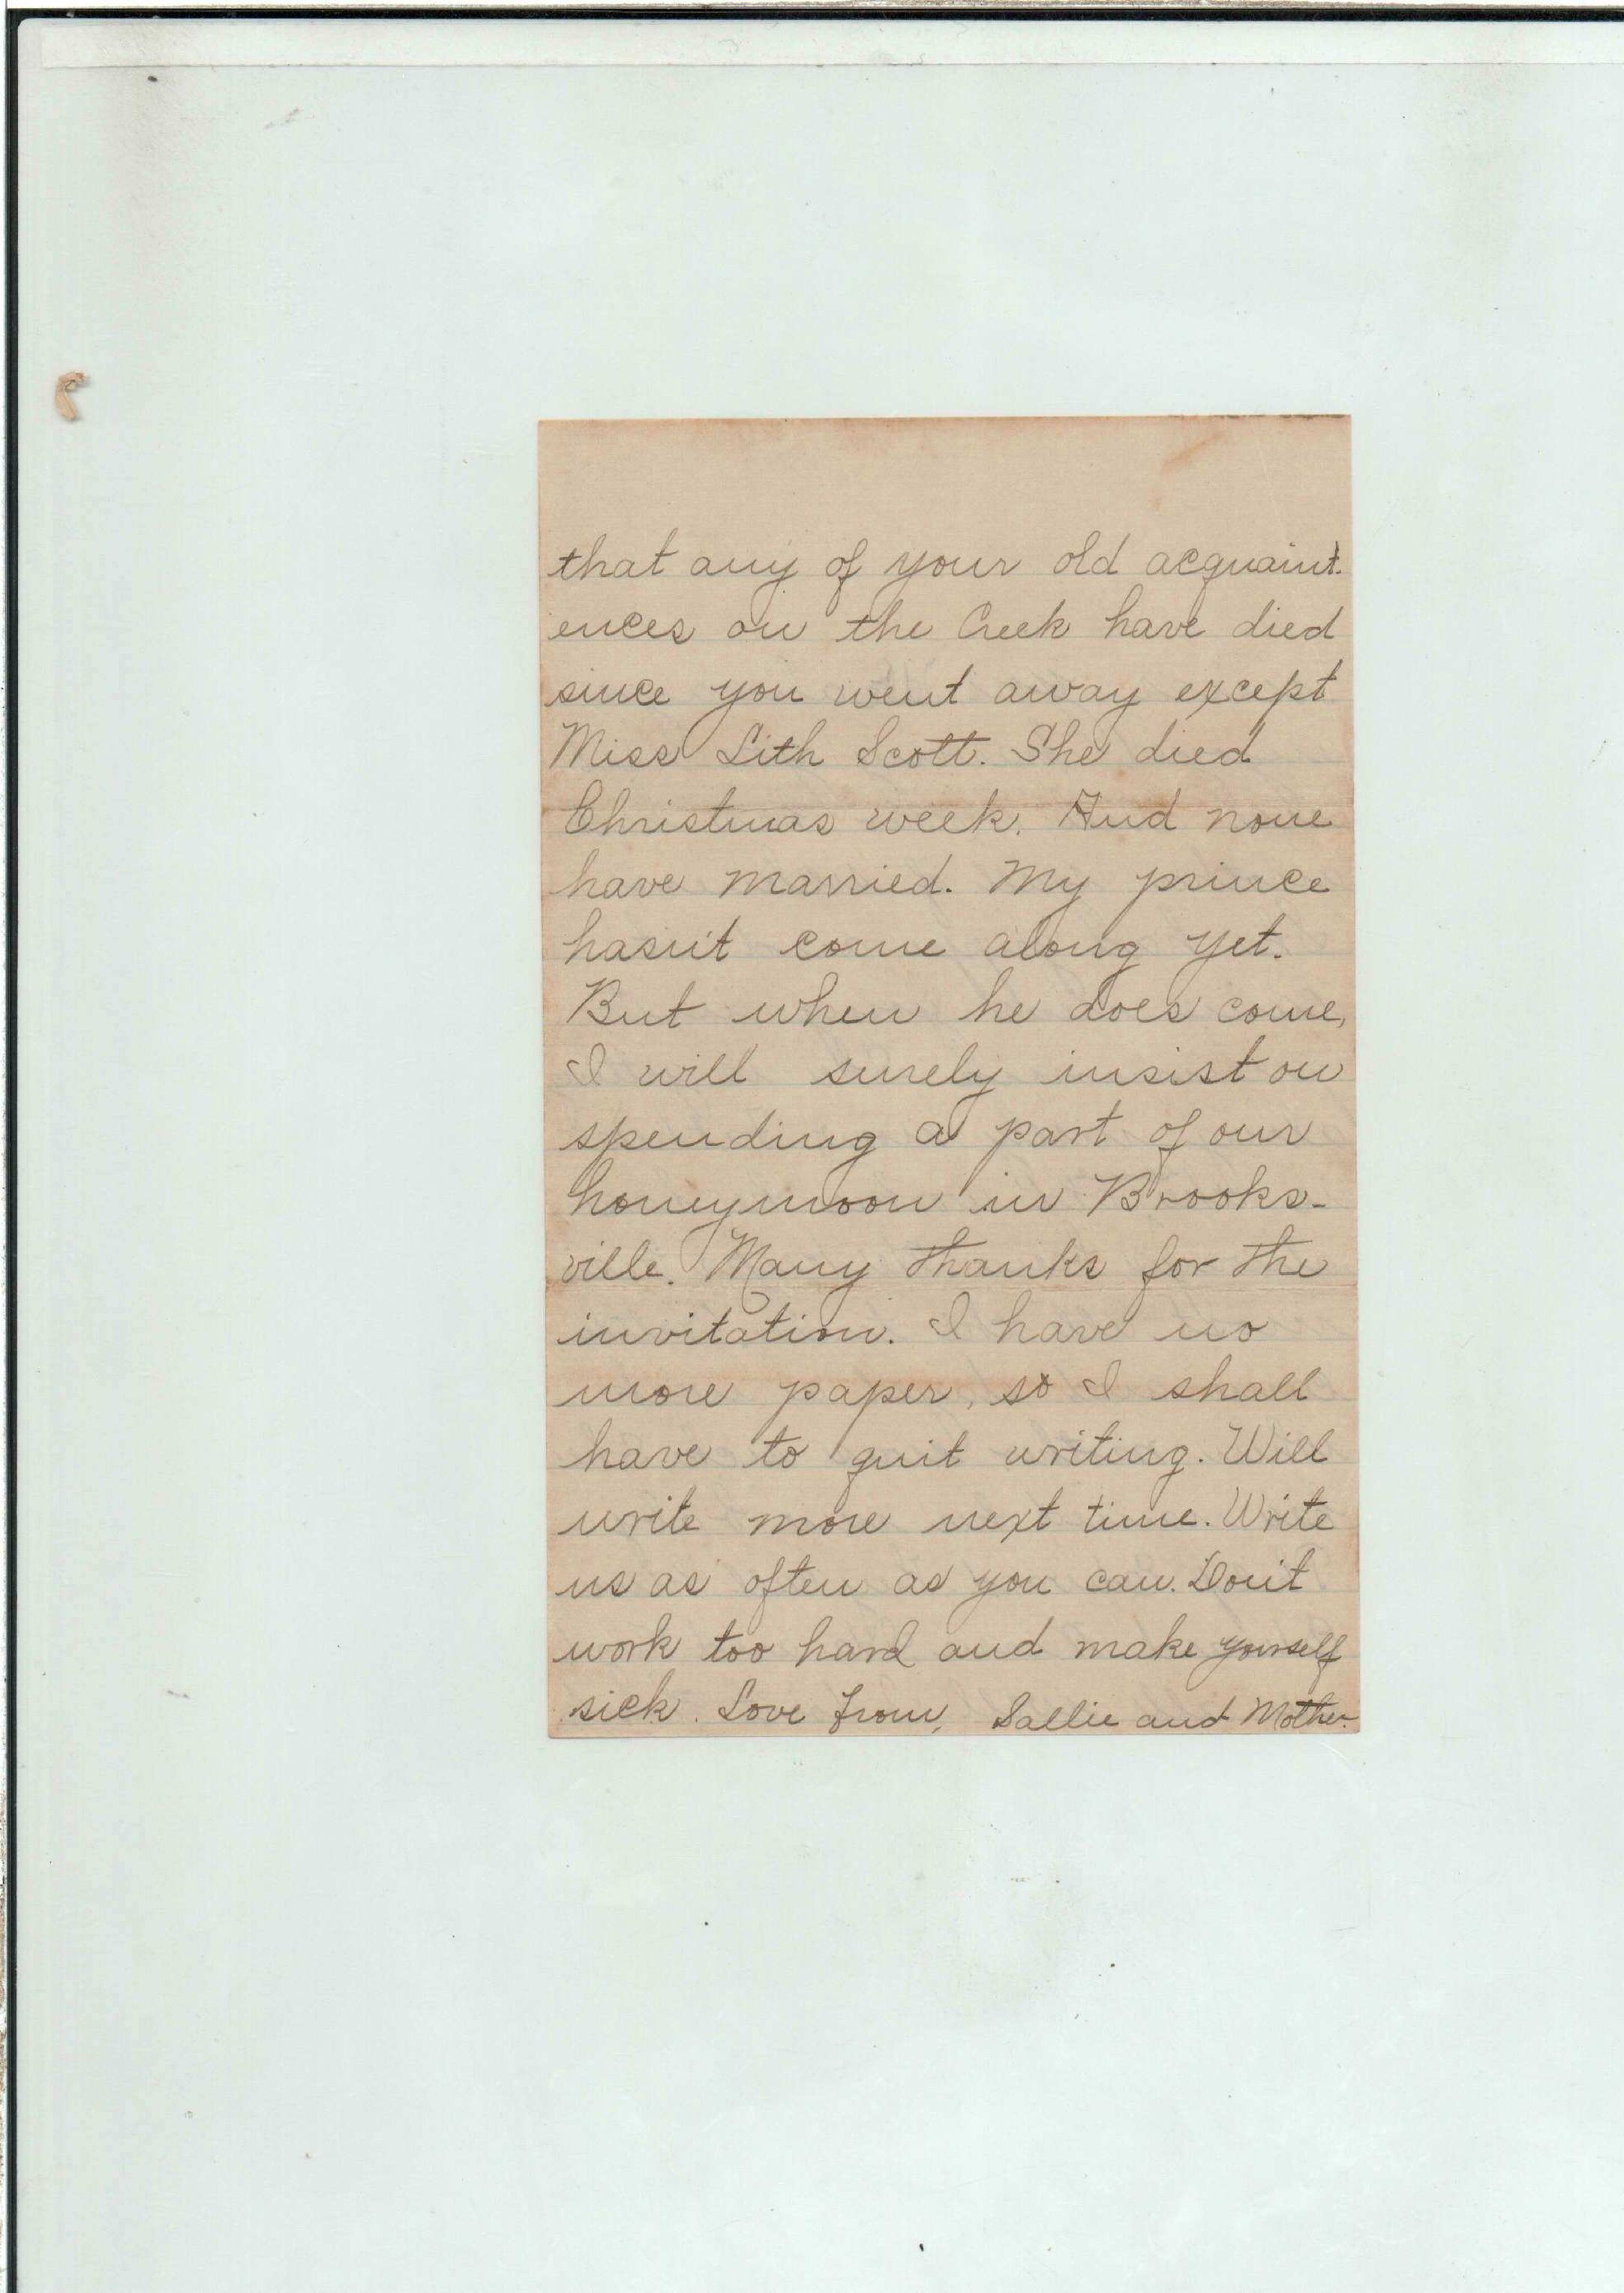 that any of your old acquaint-
ences on the Creek have died
since you went away except
Miss Lith Scott. She died
Christmas week. And none
have married. My prince
hasn't come along yet.
But when he does come,
I will surely insist on
spending a part of our
honeymoon in Brooks-
ville. Many thanks for the
invitation. I have no
more paper, so I shall
have to quit writing. Will
write more next time. Write
us as often as you can. Don't
work too hard and make yourself
sick. Love from, Sallie and Mother.